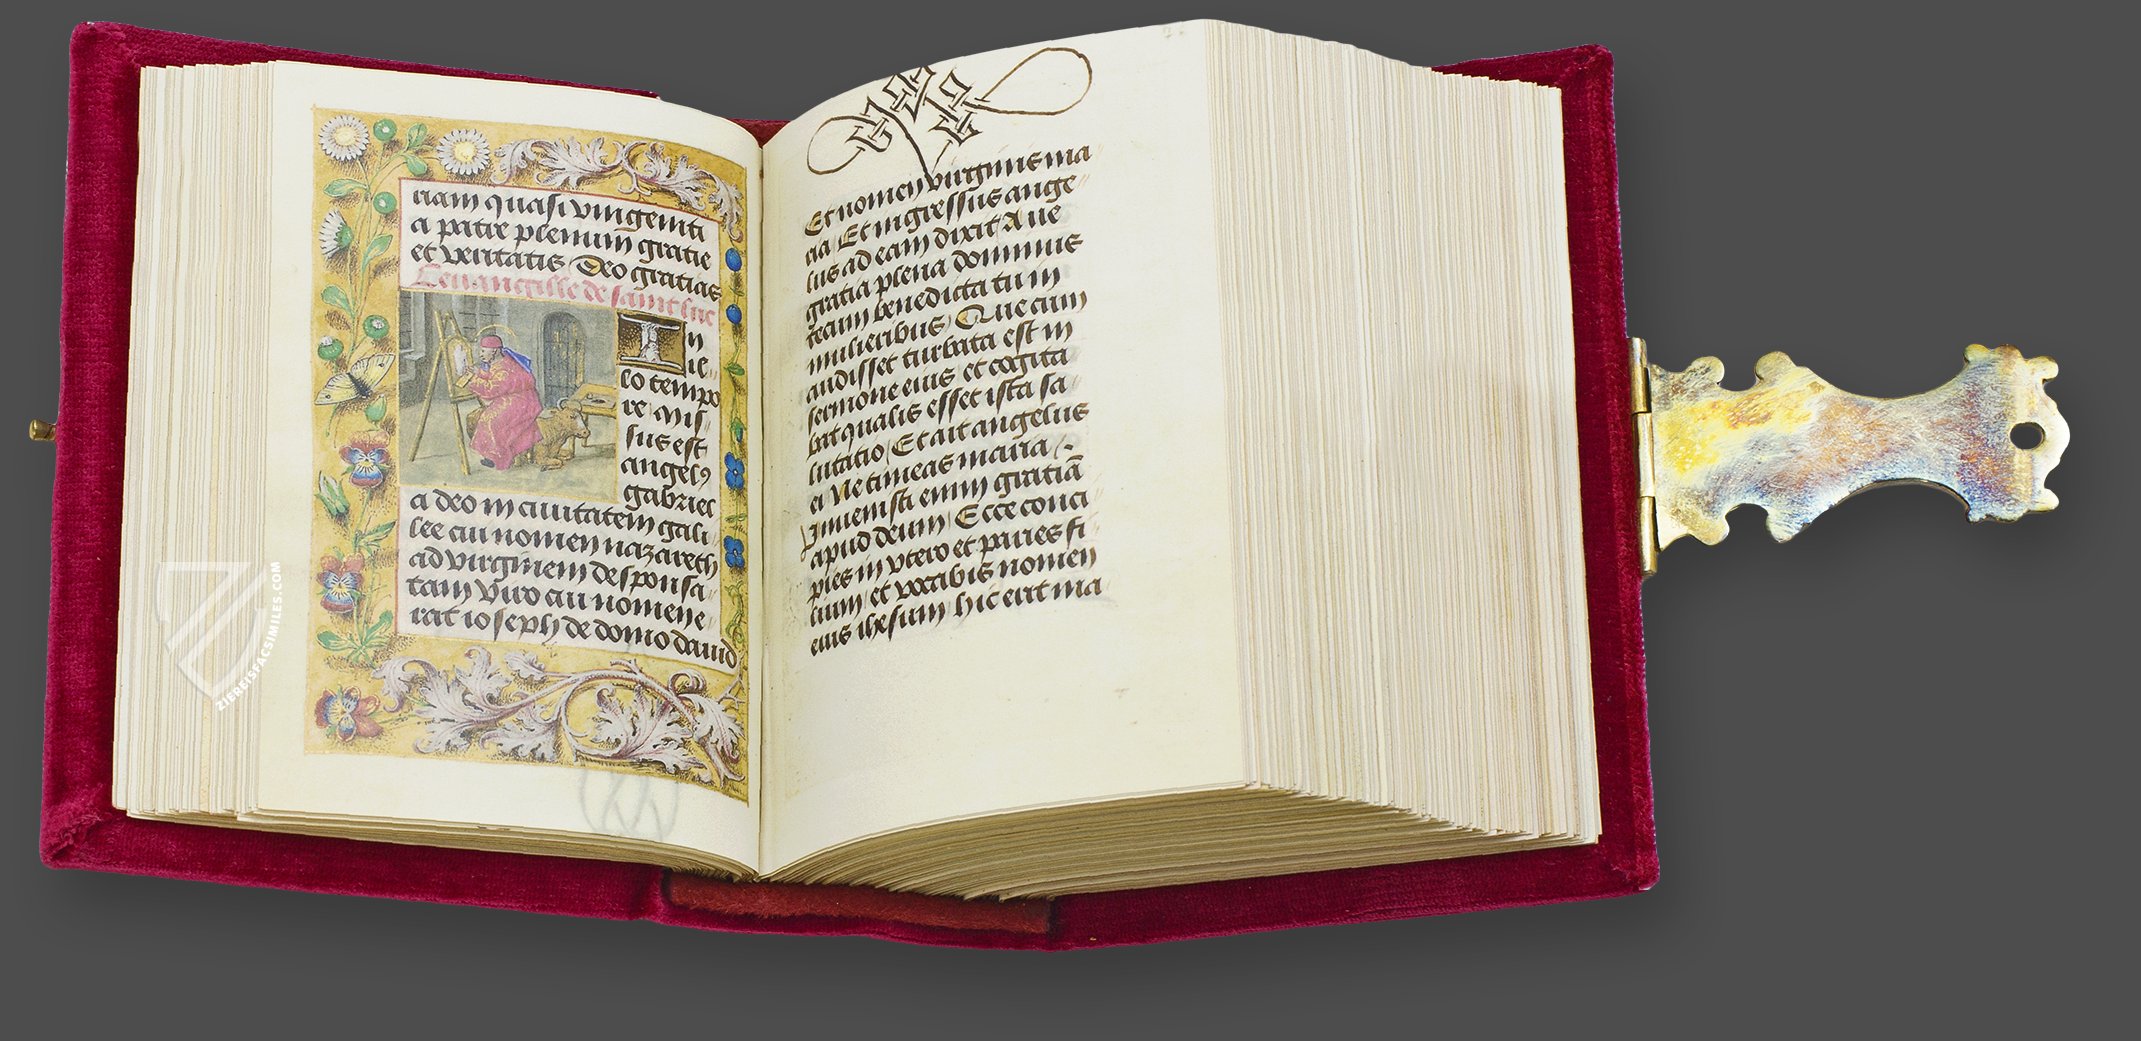 riam quasi vnigeniti
a patre plenum gratie
et veritatis Deo gratias
Leuangille de saint luc
In
il-
lo tempo
re Mis-
sus est
angelꝯ
gabriel
a deo in ciuitatem gali-
lee cui nomen nazareth
ad virginem despon sa-
tam viro cui nomen e-
rat ioseph de domo dauid
Et nomen virginis ma
ria Et ingressus ange
lus ad eam dixit Aue
gratia plena dominus
tecum benedicta tu in
mulieribus Que cum
audisset turbata est in
sermone eius et cogita
bat qualis esset ista sa
lutatio Et ait angelus
ei Ne timeas maria
Inuenisti enim gratiā
apud deum Ecce conci
pies in vtero et paries fi
lium et vocabis nomen
eius ihesum hic erit ma
ZIEREISFACSIMILES.COM